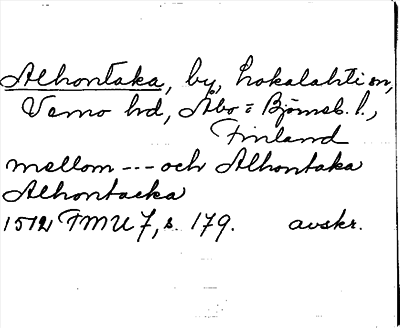 Alhontaka, by, Lokalahti sn,
Vemo hd, Åbo = Björneb. l.,
Finland
mellom --- och Alhontaka
Alhontacka
1512 FMU 7, s. 179. avskr.